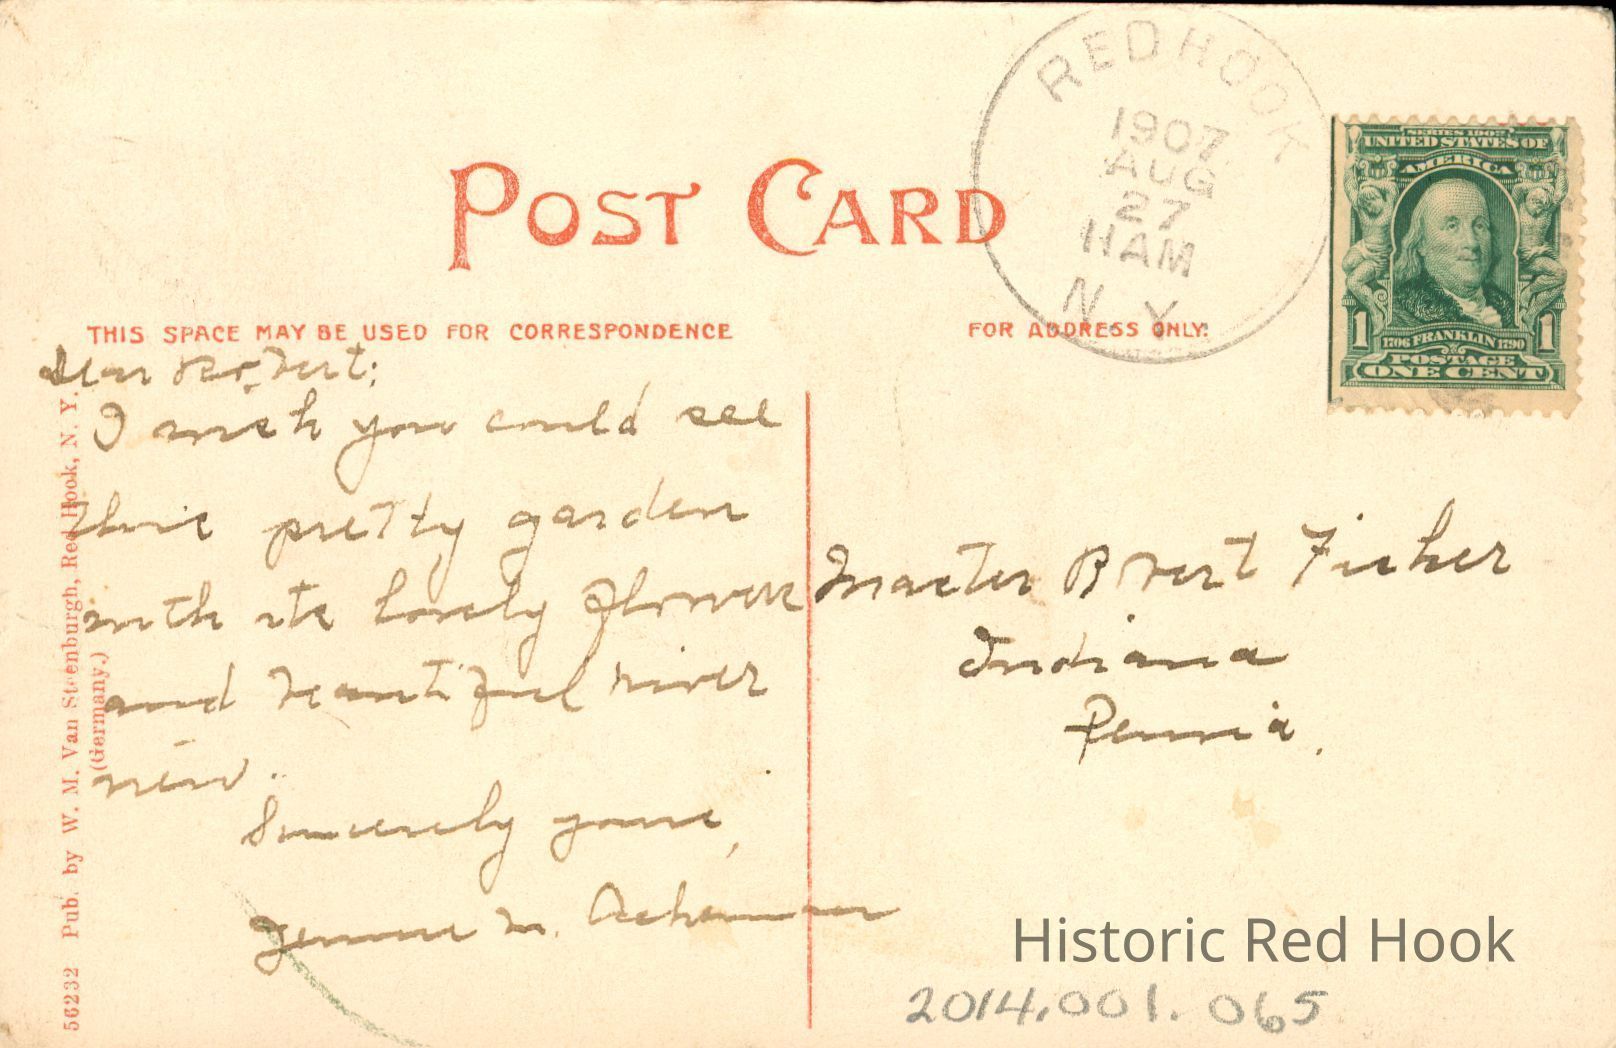 REDHOOK
1907
AUG
27
11AM
N.Y.
SERIES 1902
UNITED STATES OF
AMERICA
1 1
1706 FRANKLIN 1790
POSTAGE
ONE CENT
POST CARD
THIS SPACE MAY BE USED FOR CORRESPONDENCE
FOR ADDRESS ONLY.
Dear Robert:
I wish you could see
this pretty garden
with its lovely flowers
and beautiful river
view.
Sincerely yours,
Jennie M. Ackerman
Master Robert Fisher
Indiana
Penn'a.
56232 Pub. by W. M. Van Steenburgh, Red Hook, N. Y.
(Germany.)
Historic Red Hook
2014.001.065